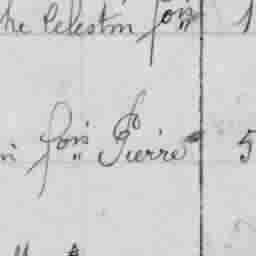 he Celestin fois 1
n fois Pierre 5